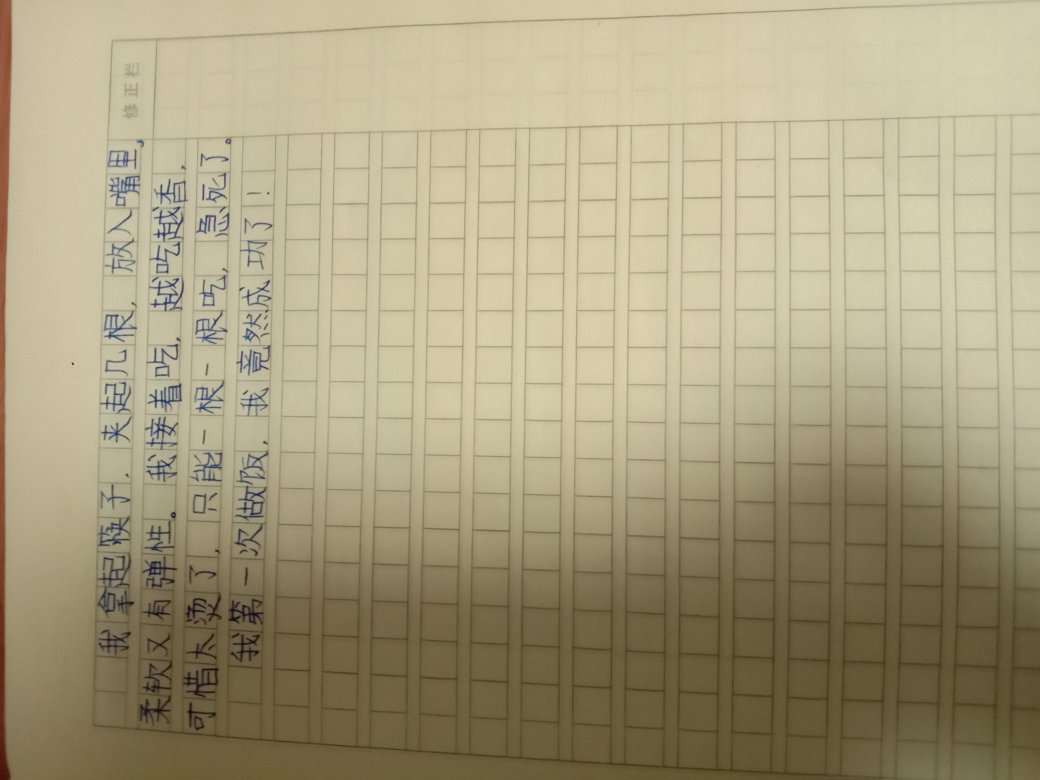 修正栏
我拿起筷子，夹起几根，放入嘴里，
柔软又有弹性。我接着吃，越吃越香，
可惜太烫了，只能一根一根吃，急死了。
我第一次做饭，我竟然成功了！